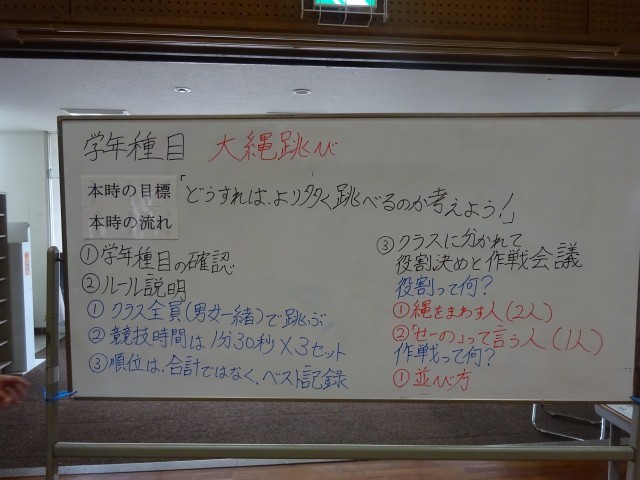 学年種目 大縄跳び
本時の目標
「どうすれば、より多く跳べるのか考えよう!」
本時の流れ
①学年種目の確認
②ルール説明
①クラス全員(男女一緒)で跳ぶ
②競技時間は1分30秒×3セット
③順位は、合計ではなく、ベスト記録
③クラスに分かれて
役割決めと作戦会議
役割って何?
①縄をまわす人(2人)
②「せーの」って言う人(1人)
作戦って何?
①並び方